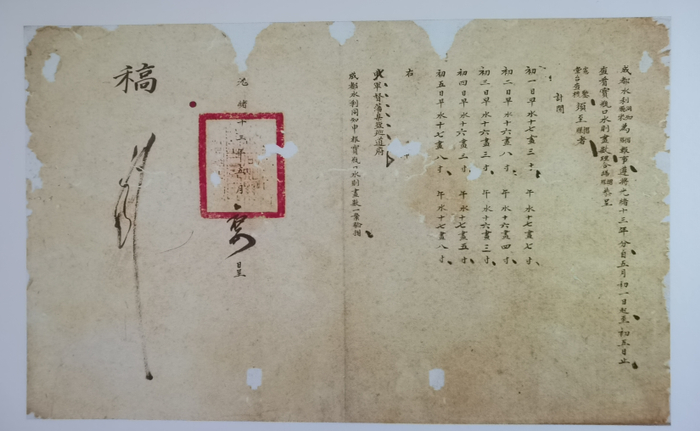 成都水利同知為開報事遵將光緒十三年分自五月初一日起至初五日止
寶瓶口水則畫數理合繕摺恭呈
憲台查核須至摺者
計開
初一日早水十七畫三寸 午水十七畫七寸
初二日早水十六畫八寸 午水十六畫四寸
初三日早水十六畫三寸 午水十六畫三寸
初四日早水十六畫三寸 午水十七畫五寸
初五日早水十七畫八寸 午水十七畫八寸
右
軍督藩臬鹽地道府
成都水利同知申報寶瓶口水則畫數一案驗摺
光緒十三年五月
日呈
稿